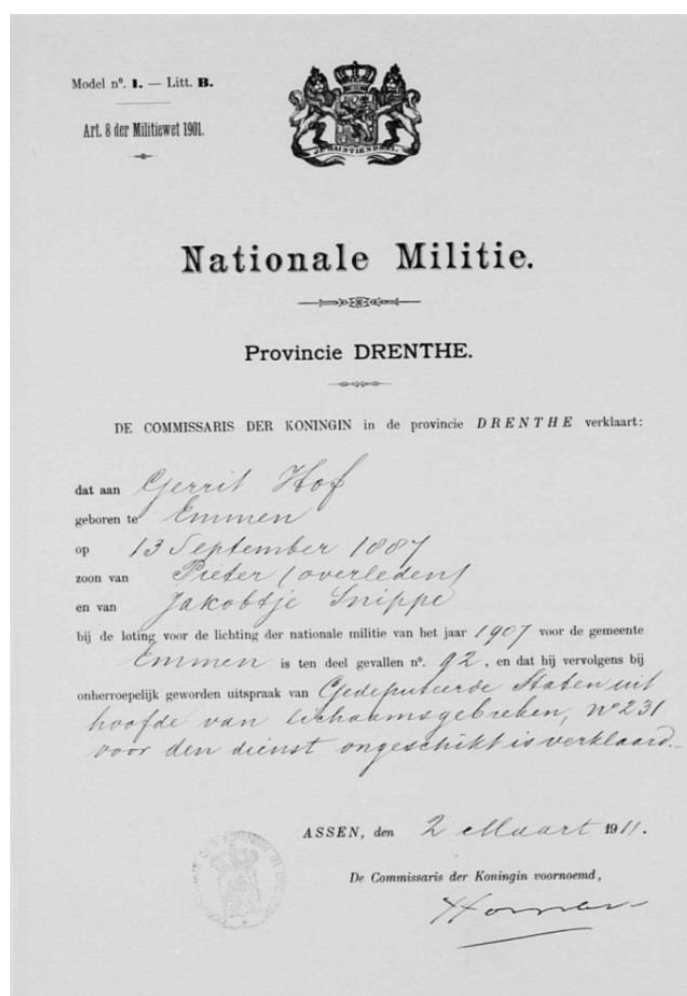 Model nº. 1. — Litt. B.
Art. 8 der Militiewet 1901.
JE MAINTIENDRAI.
Nationale Militie.
Provincie DRENTHE.
DE COMMISSARIS DER KONINGIN in de provincie DRENTHE verklaart:
dat aan Gerrit Hof
geboren te Emmen
op 13 September 1887
zoon van Pieter (overleden)
en van Jakobtje Snippe
bij de loting voor de lichting der nationale militie van het jaar 1907 voor de gemeente
Emmen is ten deel gevallen nº. 92, en dat hij vervolgens bij
onherroepelijk geworden uitspraak van Gedeputeerde Staten uit
hoofde van lichaamsgebreken, nº 231
voor den dienst ongeschikt is verklaard.
ASSEN, den 2 Maart 1911.
De Commissaris der Koningin voornoemd,